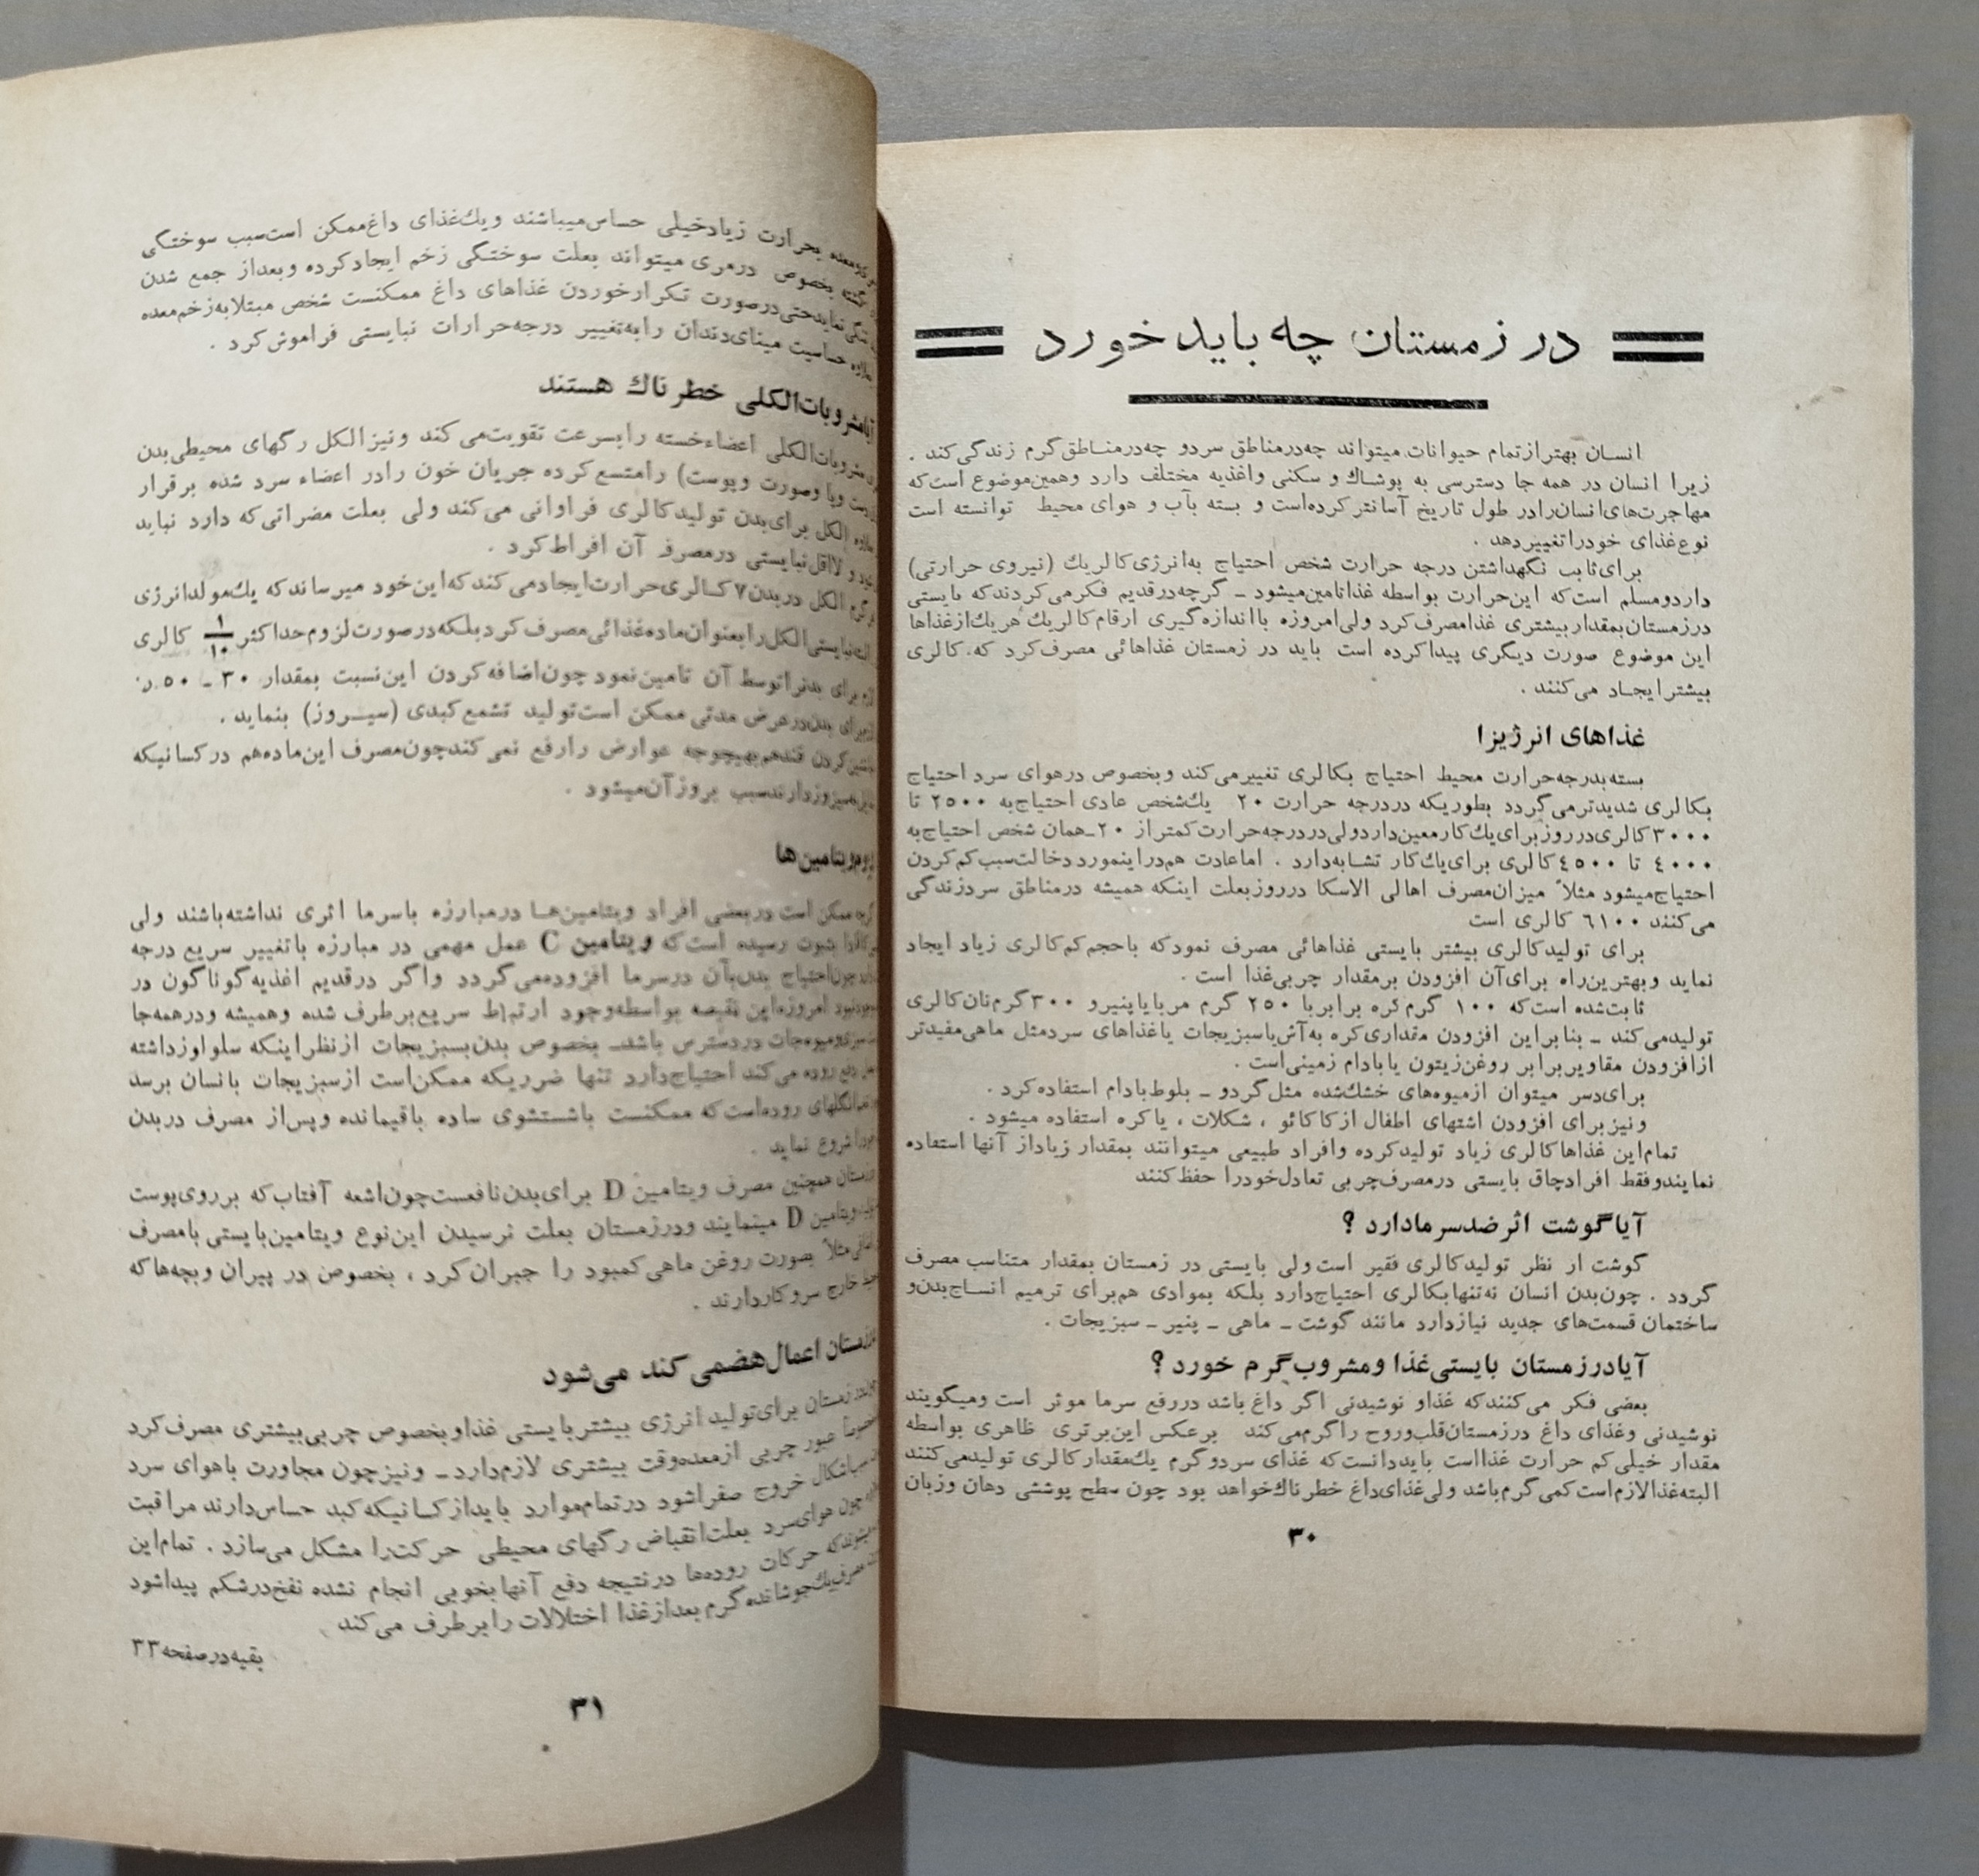 در زمستان چه باید خورد
انسان بهتر از تمام حیوانات میتواند چه در مناطق سرد و چه در مناطق گرم زندگی کند .
زیرا انسان در همه جا دسترسی به پوشاك و سکنی واغذیه مختلف دارد وهمین موضوع است که
مهاجرت‌های انسان را در طول تاریخ آسانتر کرده است و بسته بآب و هوای محیط توانسته است
نوع غذای خود را تغییر دهد .
برای ثابت نگهداشتن درجه حرارت شخص احتیاج به انرژی کالریك (نیروی حرارتی)
دارد و مسلم است که این حرارت بواسطه غذا تامین میشود ـ گرچه در قدیم فکر می کردند که بایستی
در زمستان بمقدار بیشتری غذا مصرف کرد ولی امروزه با اندازه گیری ارقام کالریك هر یك از غذاها
این موضوع صورت دیگری پیدا کرده است باید در زمستان غذاهائی مصرف کرد که، کالری
بیشتر ایجاد می کنند .
غذاهای انرژیزا
بسته بدرجه حرارت محیط احتیاج بکالری تغییر می کند وبخصوص در هوای سرد احتیاج
بکالری شدیدتر می گردد بطوریکه در درجه حرارت ۲۰ یك شخص عادی احتیاج به ۲۵۰۰ تا
۳۰۰۰ کالری در روز برای یك کار معین دارد ولی در درجه حرارت کمتر از ۲۰ـ همان شخص احتیاج به
۴۰۰۰ تا ۴۵۰۰ کالری برای یك کار تشابه دارد . اما عادت هم در اینمورد دخالت سبب کم کردن
احتیاج میشود مثلاً میزان مصرف اهالی الاسکا در روز بعلت اینکه همیشه در مناطق سرد زندگی
می کنند ۶۱۰۰ کالری است
برای تولید کالری بیشتر بایستی غذاهائی مصرف نمود که با حجم کم کالری زیاد ایجاد
نماید و بهترین راه برای آن افزودن بر مقدار چربی غذا است .
ثابت شده است که ۱۰۰ گرم کره برابر با ۲۵۰ گرم مربا یا پنیر و ۳۰۰ گرم نان کالری
تولید می کند ـ بنابراین افزودن مقداری کره به آش یا سبزیجات یا غذاهای سرد مثل ماهی مفیدتر
از افزودن مقاویر برابر روغن زیتون یا بادام زمینی است .
برای دسر میتوان از میوه‌های خشك شده مثل گردو ـ بلوط بادام استفاده کرد .
و نیز برای افزودن اشتهای اطفال از کاکائو ، شکلات ، یا کره استفاده میشود .
تمام این غذاها کالری زیاد تولید کرده وافراد طبیعی میتوانند بمقدار زیاد از آنها استفاده
نمایند و فقط افراد چاق بایستی در مصرف چربی تعادل خود را حفظ کنند
آیا گوشت اثر ضد سرما دارد ؟
گوشت از نظر تولید کالری فقیر است ولی بایستی در زمستان بمقدار متناسب مصرف
گردد . چون بدن انسان نه تنها بکالری احتیاج دارد بلکه بموادی هم برای ترمیم انساج بدن و
ساختمان قسمت‌های جدید نیاز دارد مانند گوشت ـ ماهی ـ پنیر ـ سبزیجات .
آیا در زمستان بایستی غذا و مشروب گرم خورد ؟
بعضی فکر می کنند که غذا و نوشیدنی اگر داغ باشد در رفع سرما موثر است ومیگویند
نوشیدنی وغذای داغ در زمستان قلب و روح را گرم می کند برعکس این برتری ظاهری بواسطه
مقدار خیلی کم حرارت غذا است باید دانست که غذای سرد و گرم یك مقدار کالری تولید می کنند
البته غذا لازم است کمی گرم باشد ولی غذای داغ خطرناك خواهد بود چون سطح پوششی دهان وزبان
۳۰
بحرارت زیاد خیلی حساس میباشند و یك غذای داغ ممکن است سبب سوختگی
بخصوص در مری میتواند بعلت سوختگی زخم ایجاد کرده و بعد از جمع شدن
نماید حتی در صورت تکرار خوردن غذاهای داغ ممکنست شخص مبتلا به زخم معده
حساسیت مینای دندان را به تغییر درجه حرارات نبایستی فراموش کرد .
آیا مشروبات الکلی خطرناك هستند
مشروبات الکلی اعضاء خسته را بسرعت تقویت می کند و نیز الکل رگهای محیطی بدن
وپا وصورت وپوست) را متسع کرده جریان خون را در اعضاء سرد شده برقرار
الکل برای بدن تولید کالری فراوانی می کند ولی بعلت مضراتی که دارد نباید
و لااقل نبایستی در مصرف آن افراط کرد .
گرم الکل در بدن ۷ کالری حرارت ایجاد می کند که این خود میرساند که یك مولد انرژی
نبایستی الکل را بعنوان ماده غذائی مصرف کرد بلکه در صورت لزوم حداکثر ۱/۱۰ کالری
برای بدنرا توسط آن تامین نمود چون اضافه کردن این نسبت بمقدار ۳۰ ـ ۵۰ در
برای بدن در عرض مدتی ممکن است تولید تشمع کبدی (سیروز) بنماید .
کردن قند هم بهیچوجه عوارض را رفع نمی کند چون مصرف این ماده هم در کسانیکه
سیروز دارند سبب بروز آن میشود .
ویتامین‌ها
ممکن است در بعضی افراد ویتامین‌ها در مبارزه با سرما اثری نداشته باشند ولی
بثبوت رسیده است که ویتامین C عمل مهمی در مبارزه با تغییر سریع درجه
چون احتیاج بدن بآن در سرما افزوده می گردد واگر در قدیم اغذیه گوناگون در
امروزه این نقیصه بواسطه وجود ارتباط سریع برطرف شده وهمیشه ودر همه جا
ومیوه جات در دسترس باشد ـ بخصوص بدن بسبزیجات از نظر اینکه سلولز داشته
رفع روده می کند احتیاج دارد تنها ضرریکه ممکن است از سبزیجات بانسان برسد
انگلهای روده است که ممکنست با شستشوی ساده باقیمانده و پس از مصرف در بدن
شروع نماید .
همچنین مصرف ویتامین D برای بدن نافعست چون اشعه آفتاب که بر روی پوست
ویتامین D مینمایند و در زمستان بعلت نرسیدن این نوع ویتامین بایستی با مصرف
مثلاً بصورت روغن ماهی کمبود را جبران کرد ، بخصوص در پیران و بچه‌ها که
خارج سر و کار دارند .
زمستان اعمال هضمی کند می شود
زمستان برای تولید انرژی بیشتر بایستی غذا و بخصوص چربی بیشتری مصرف کرد
عبور چربی از معده وقت بیشتری لازم دارد ـ و نیز چون مجاورت با هوای سرد
اشکال خروج صفرا شود در تمام موارد باید از کسانیکه کبد حساس دارند مراقبت
چون هوای سرد بعلت انقباض رگهای محیطی حرکت را مشکل می سازد . تمام این
که حرکات روده‌ها در نتیجه دفع آنها بخوبی انجام نشده نفخ در شکم پیدا شود
مصرف یك جوشانده گرم بعد از غذا اختلالات را برطرف می کند
بقیه در صفحه ۳۳
۳۱